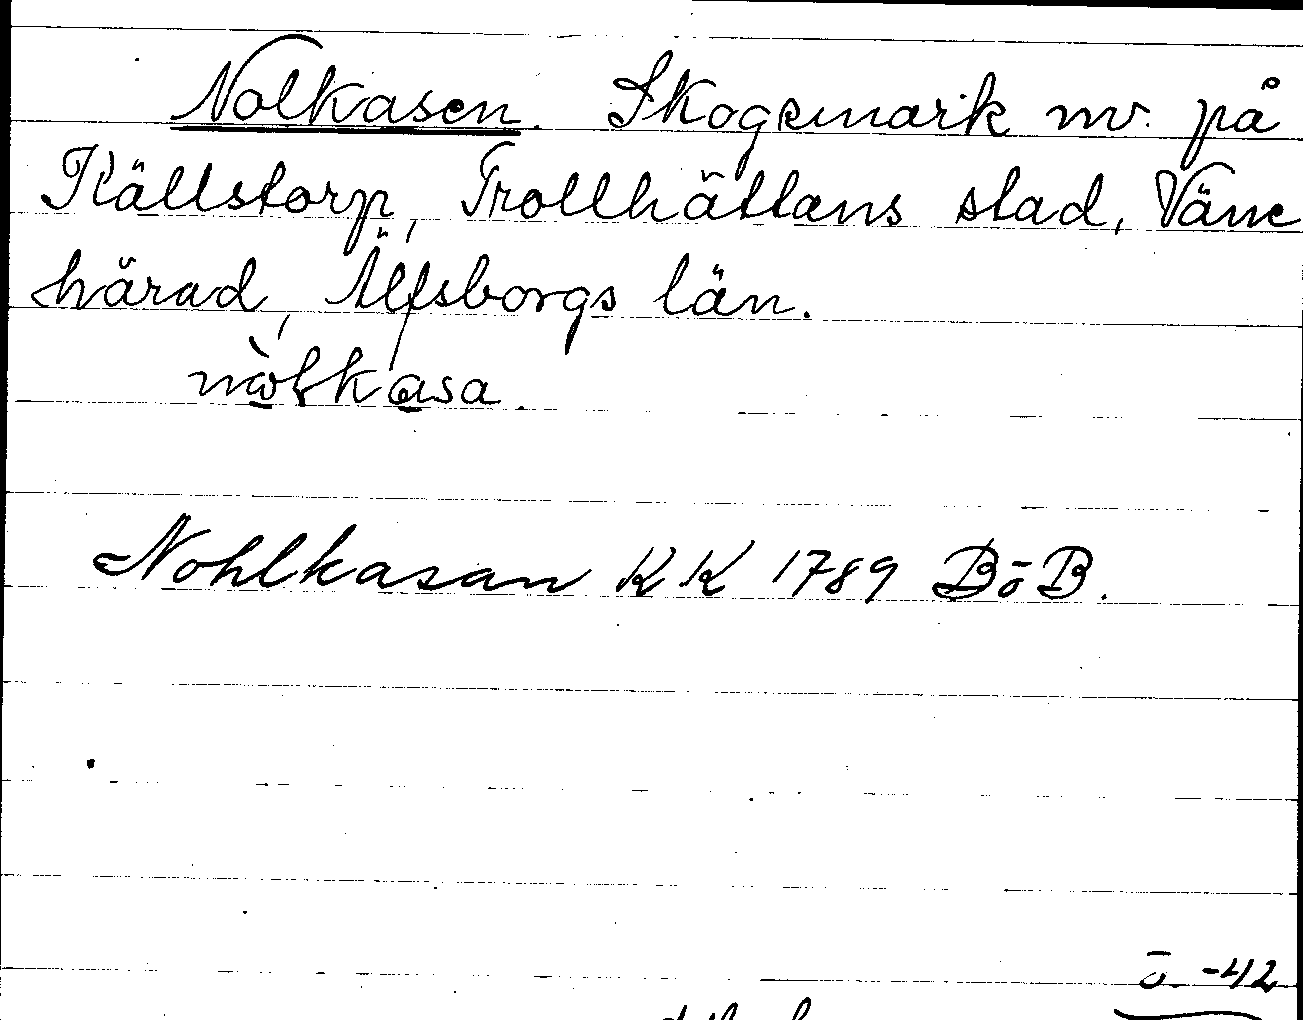 Nolkasen. Skogsmark nv. på
Källstorp, Trollhättans stad, Väne
härad, Älfsborgs län.
nòlkasa.
Nohlkasan KK 1789 BöB.
ö. -42